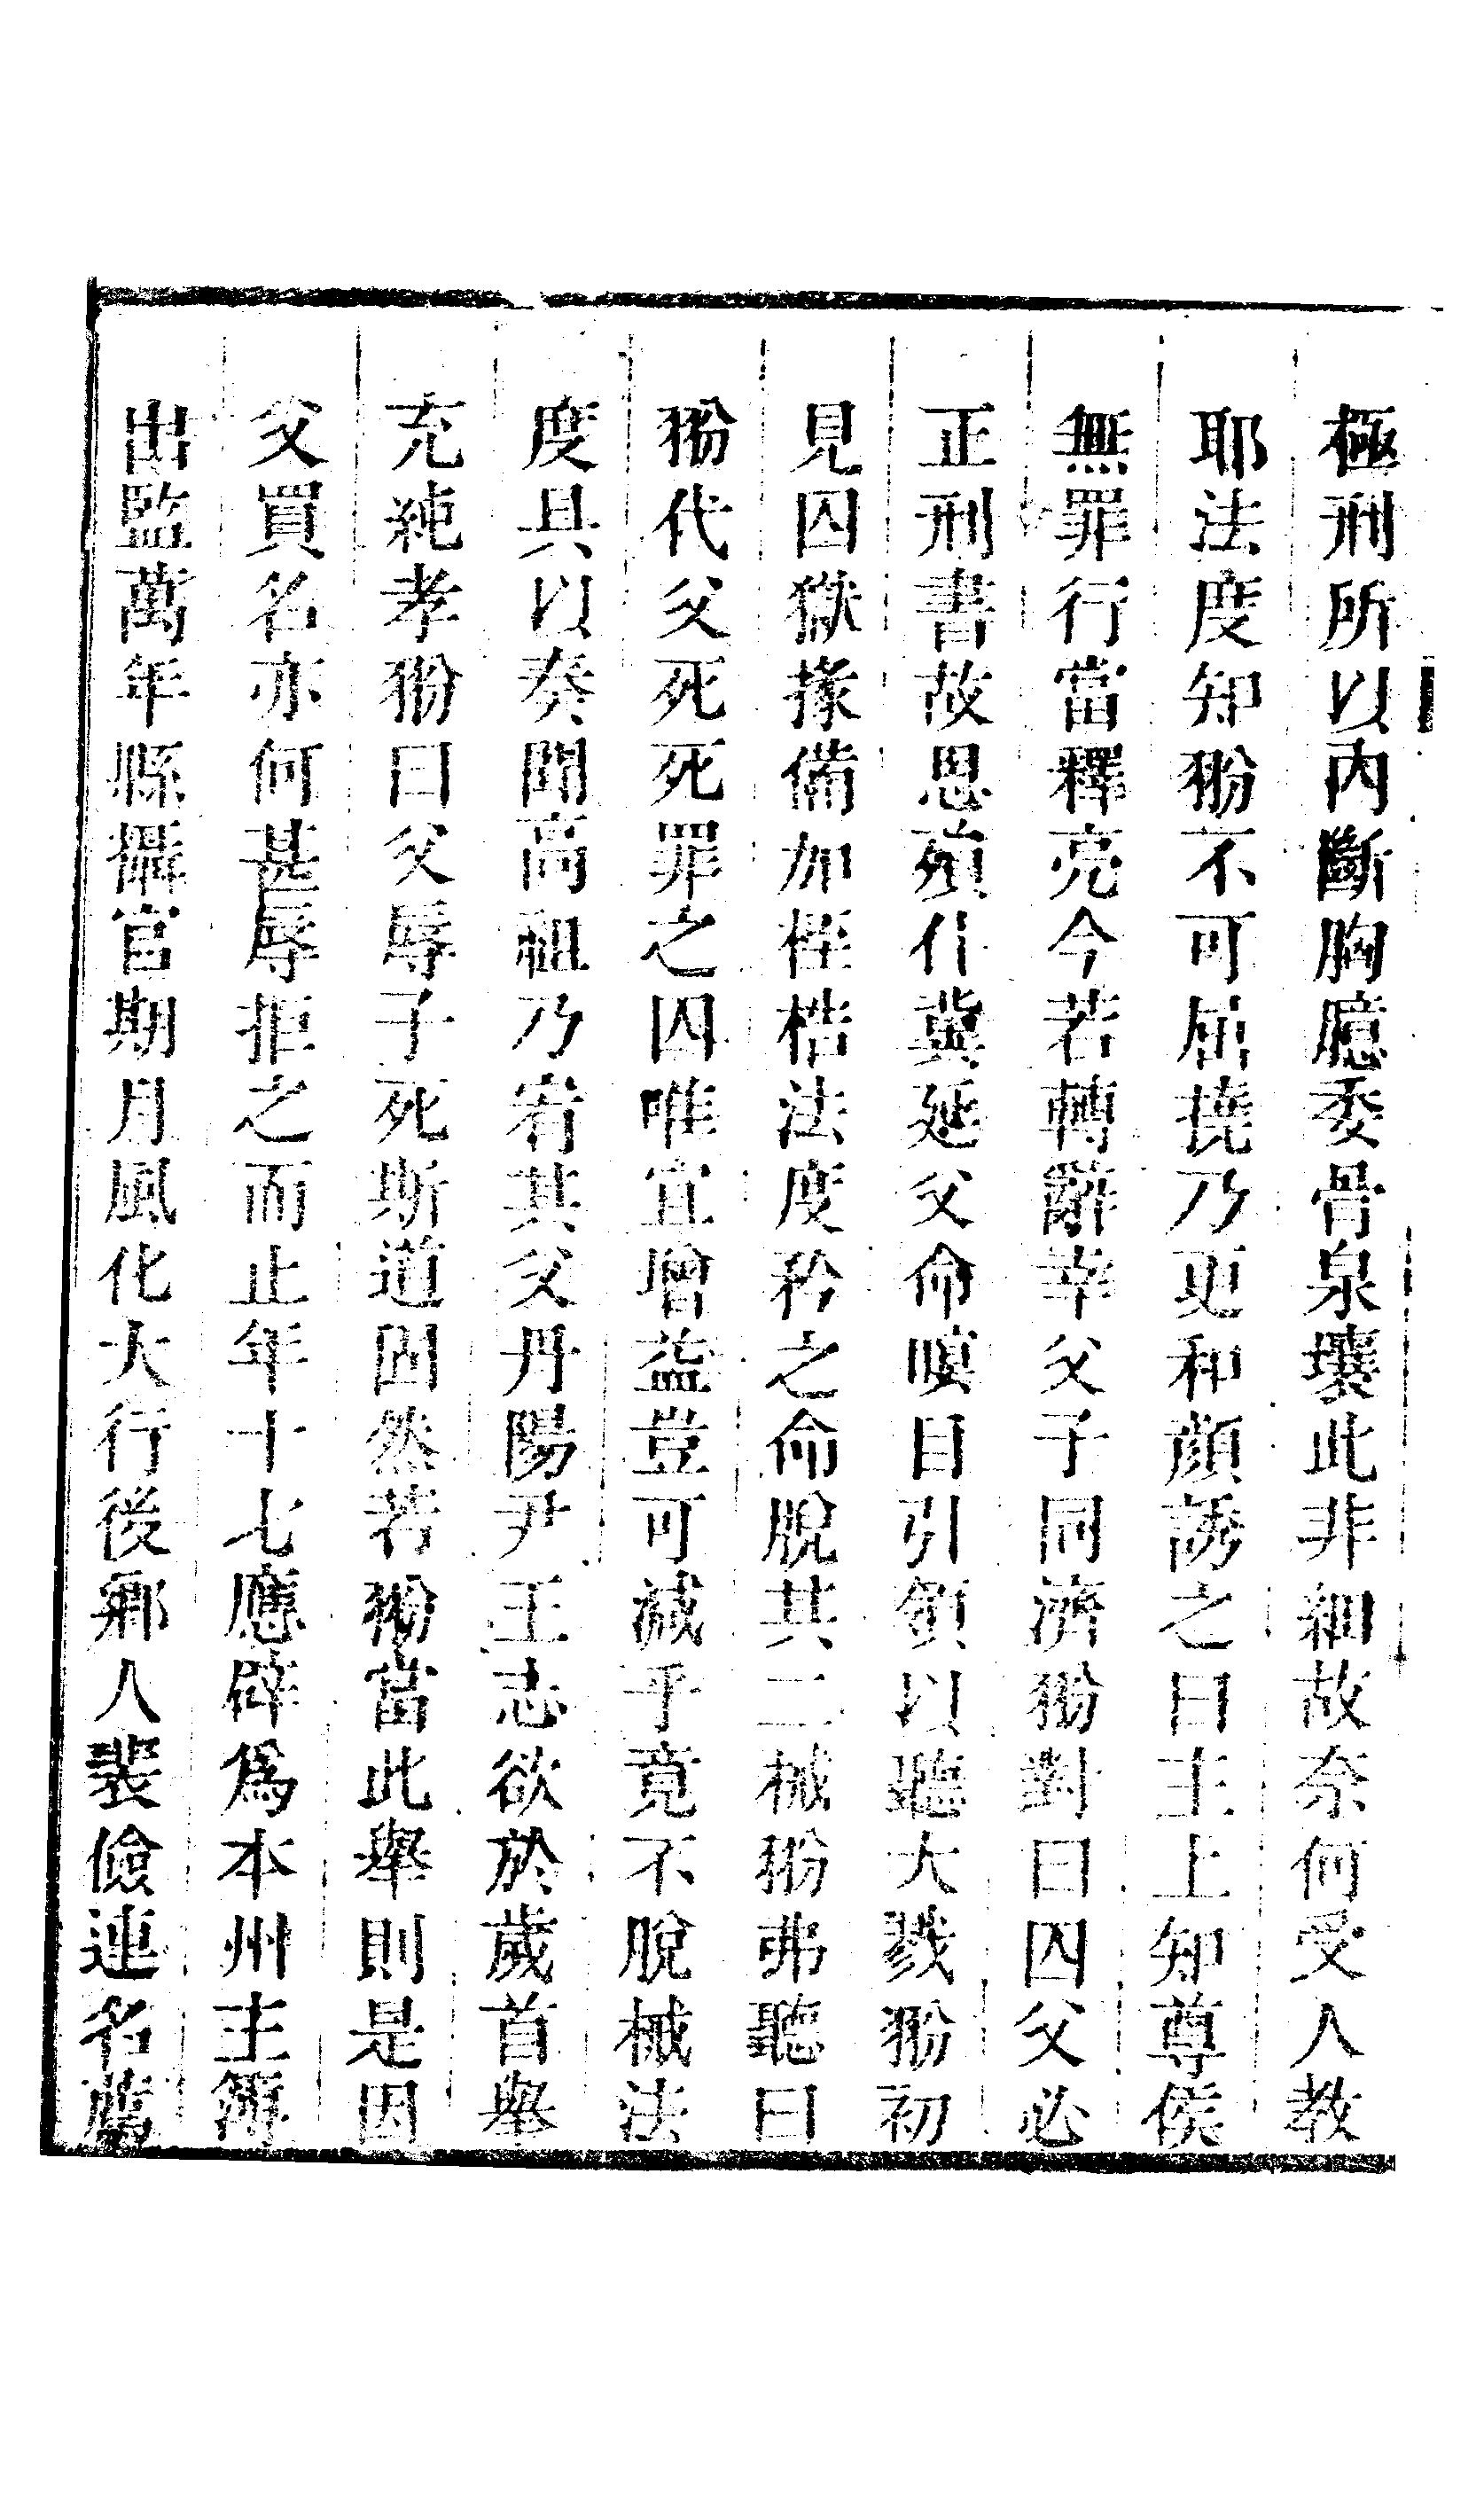 極刑所以內斷胸臆委骨泉壤此非細故奈何受人教
耶法度知翂不可屈撓乃更和顏誘之曰主上知尊侯
無罪行當釋亮今若轉辭幸父子同濟翂對曰囚父必
正刑書故思殞仆冀延父命嗔目引領以聽大戮翂初
見囚獄掾備加桎梏法度矜之命脫其二械翂弗聽曰
翂代父死死罪之囚唯宜增益豈可減乎竟不脫械法
度具以奏聞高祖乃宥其父丹陽尹王志欲於歲首舉
充純孝翂曰父辱子死斯道固然若翂當此舉則是因
父買名亦何甚辱拒之而止年十七應辟爲本州主簿
出監萬年縣攝官期月風化大行後鄉人裴儉連名薦